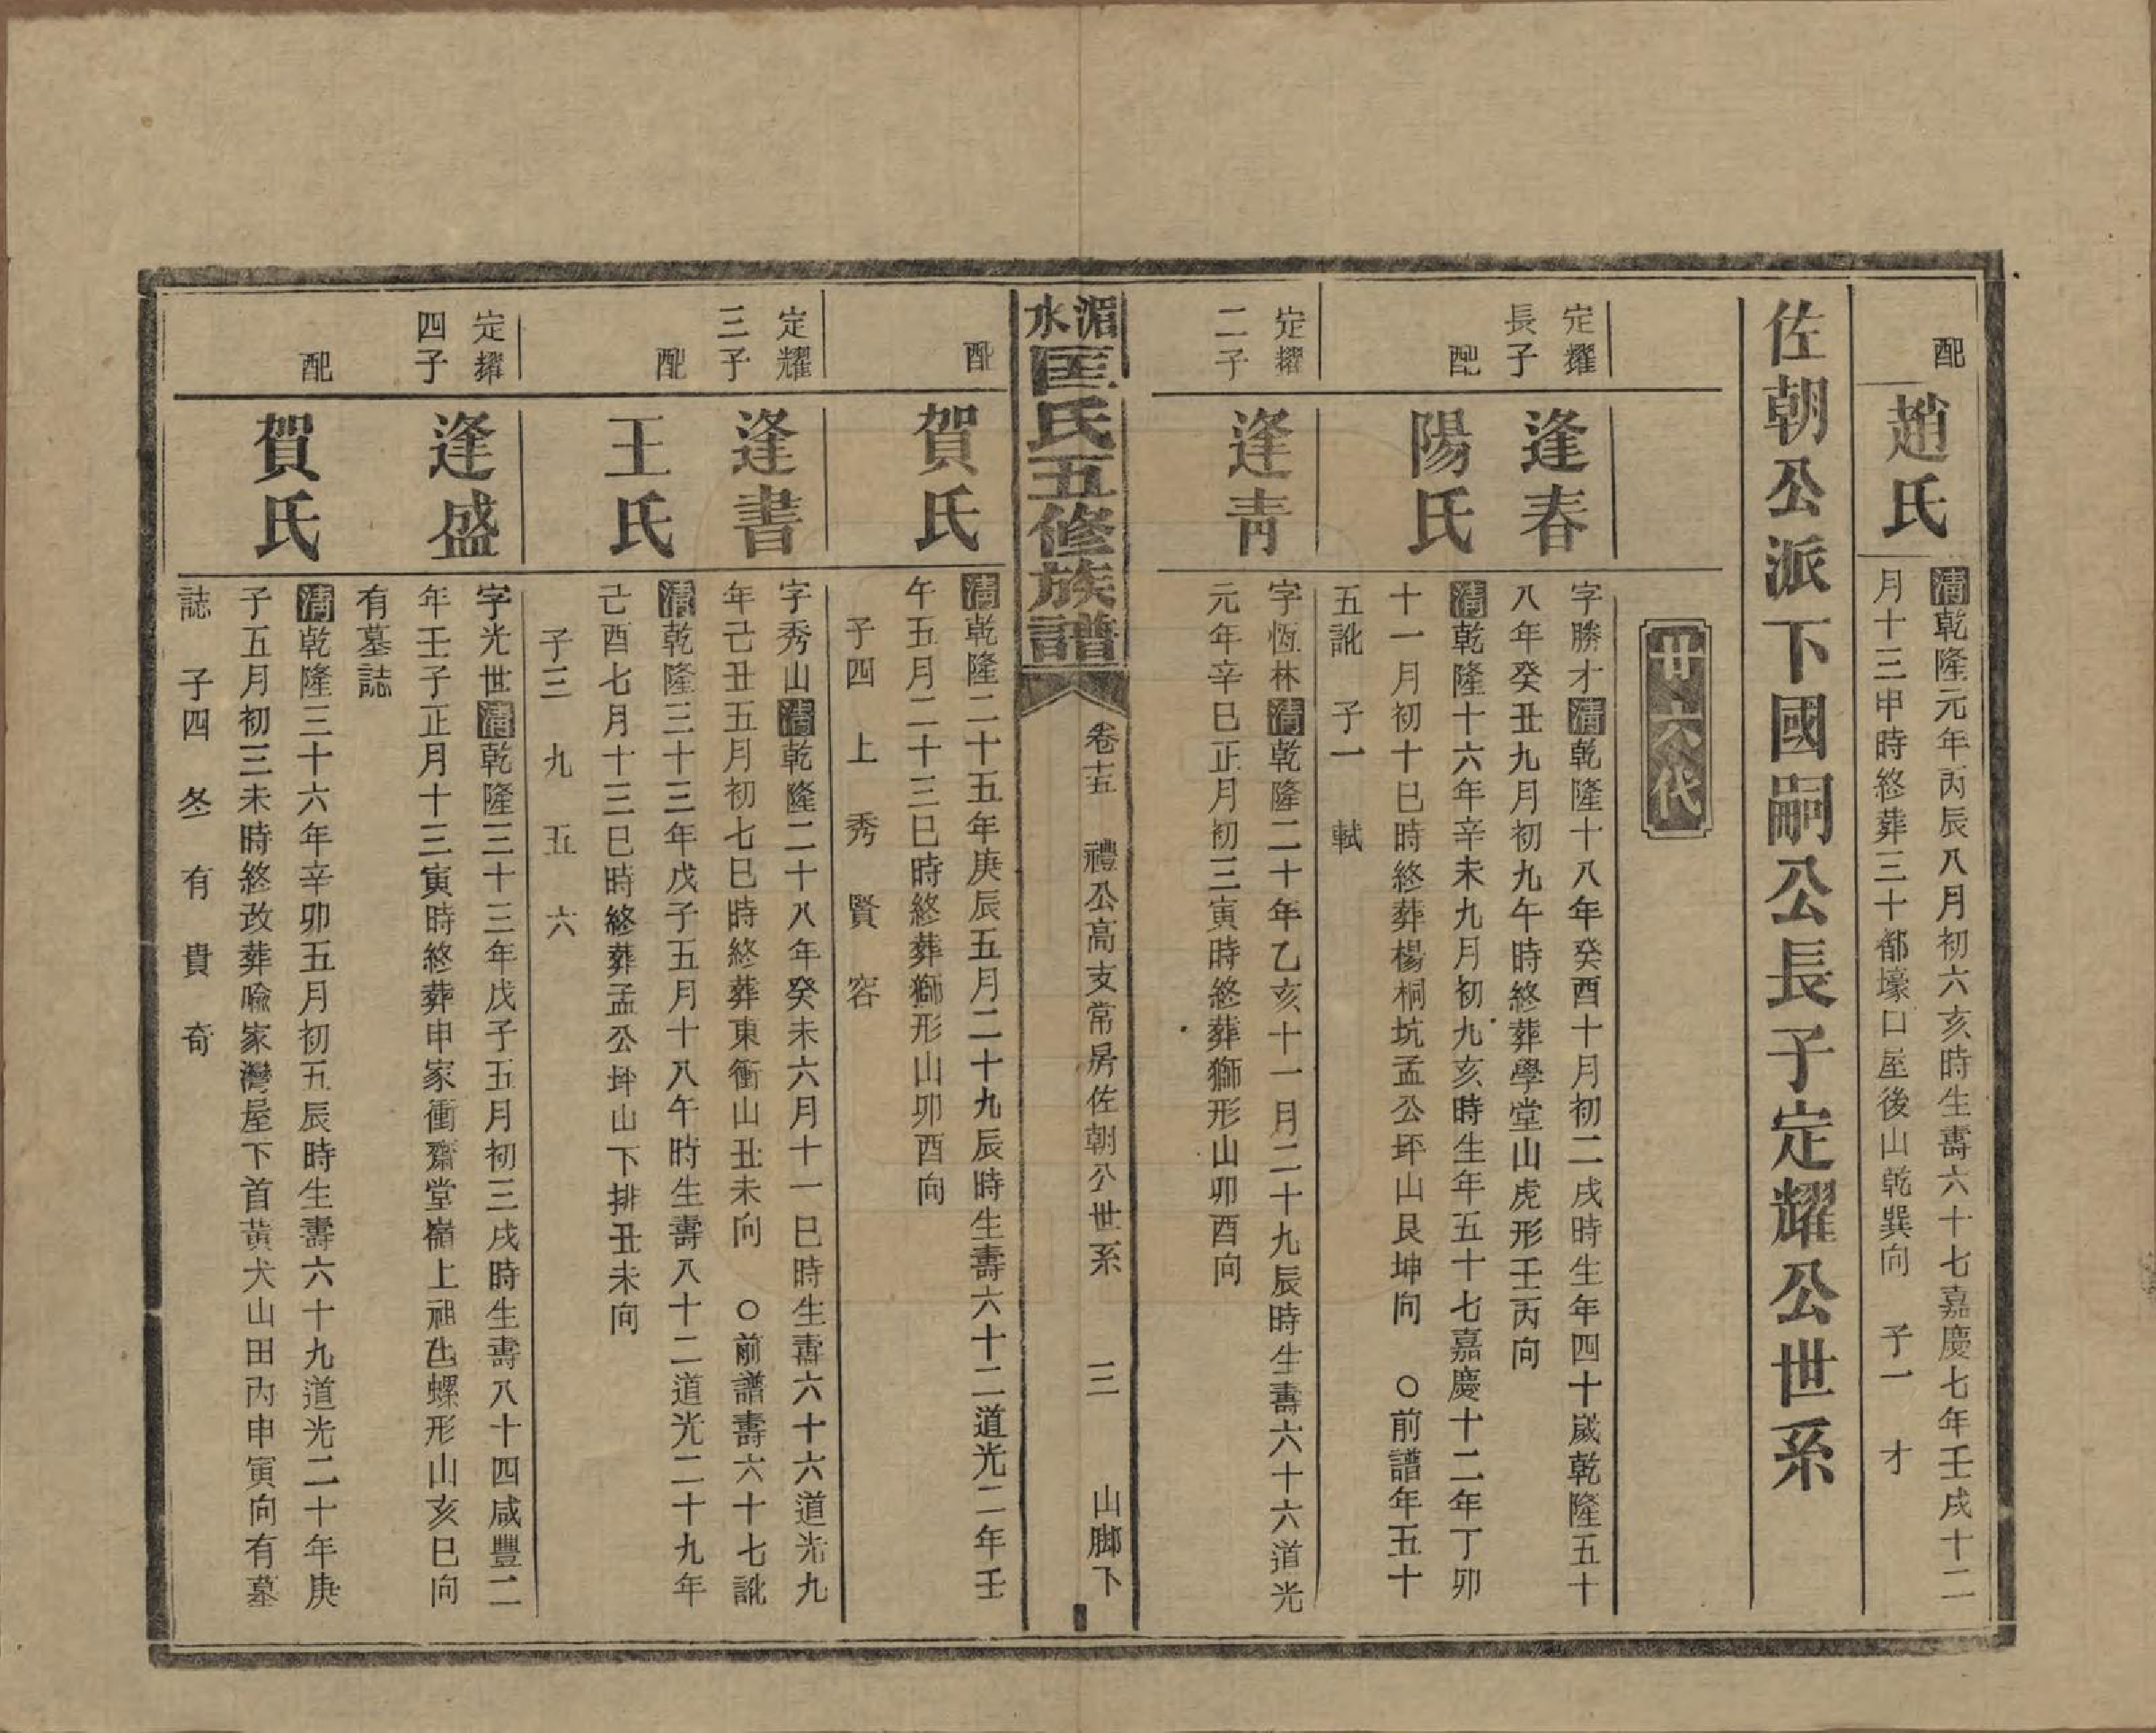 配
趙氏
清乾隆元年丙辰八月初六亥時生壽六十七嘉慶七年壬戌十二
月十三申時終葬三十都壕口屋後山乾巽向 子一 才
佐朝公派下國嗣公長子定耀公世系
廿六代
定耀
長子
逢春
字勝才清乾隆十八年癸酉十月初二戌時生年四十歲乾隆五十
八年癸丑九月初九午時終葬學堂山虎形壬丙向
配
陽氏
清乾隆十六年辛未九月初九亥時生年五十七嘉慶十二年丁卯
十一月初十巳時終葬楊桐坑孟公坪山艮坤向 ○前譜年五十
五訛 子一 軾
定耀
二子
逢青
字恆林清乾隆二十年乙亥十一月二十九辰時生壽六十六道光
元年辛巳正月初三寅時終葬獅形山卯酉向
湄水匡氏五修族譜
卷十五 禮公高支常房佐朝公世系 三 山腳下
配
賀氏
清乾隆二十五年庚辰五月二十九辰時生壽六十二道光二年壬
午五月二十三巳時終葬獅形山卯酉向
子四 上 秀 賢 容
定耀
三子
逢書
字秀山清乾隆二十八年癸未六月十一巳時生壽六十六道光九
年己丑五月初七巳時終葬東衝山丑未向 ○前譜壽六十七訛
配
王氏
清乾隆三十三年戊子五月十八午時生壽八十二道光二十九年
己酉七月十三巳時終葬孟公坪山下排丑未向
子三 九 五 六
定耀
四子
逢盛
字光世清乾隆三十三年戊子五月初三戌時生壽八十四咸豐二
年壬子正月十三寅時終葬申家衝齋堂嶺上祖乸螺形山亥巳向
有墓誌
配
賀氏
清乾隆三十六年辛卯五月初五辰時生壽六十九道光二十年庚
子五月初三未時終改葬喩家灣屋下首黃犬山田內申寅向有墓
誌 子四 冬 有 貴 奇